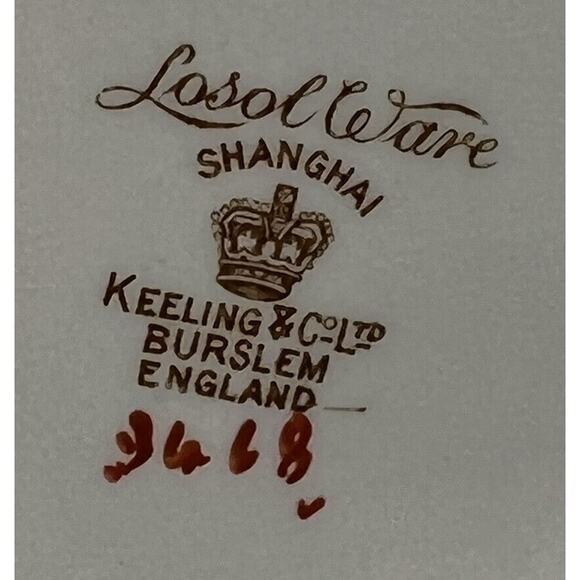 Losol Ware
SHANGHAI
KEELING & Co LTD
BURSLEM
ENGLAND
9468